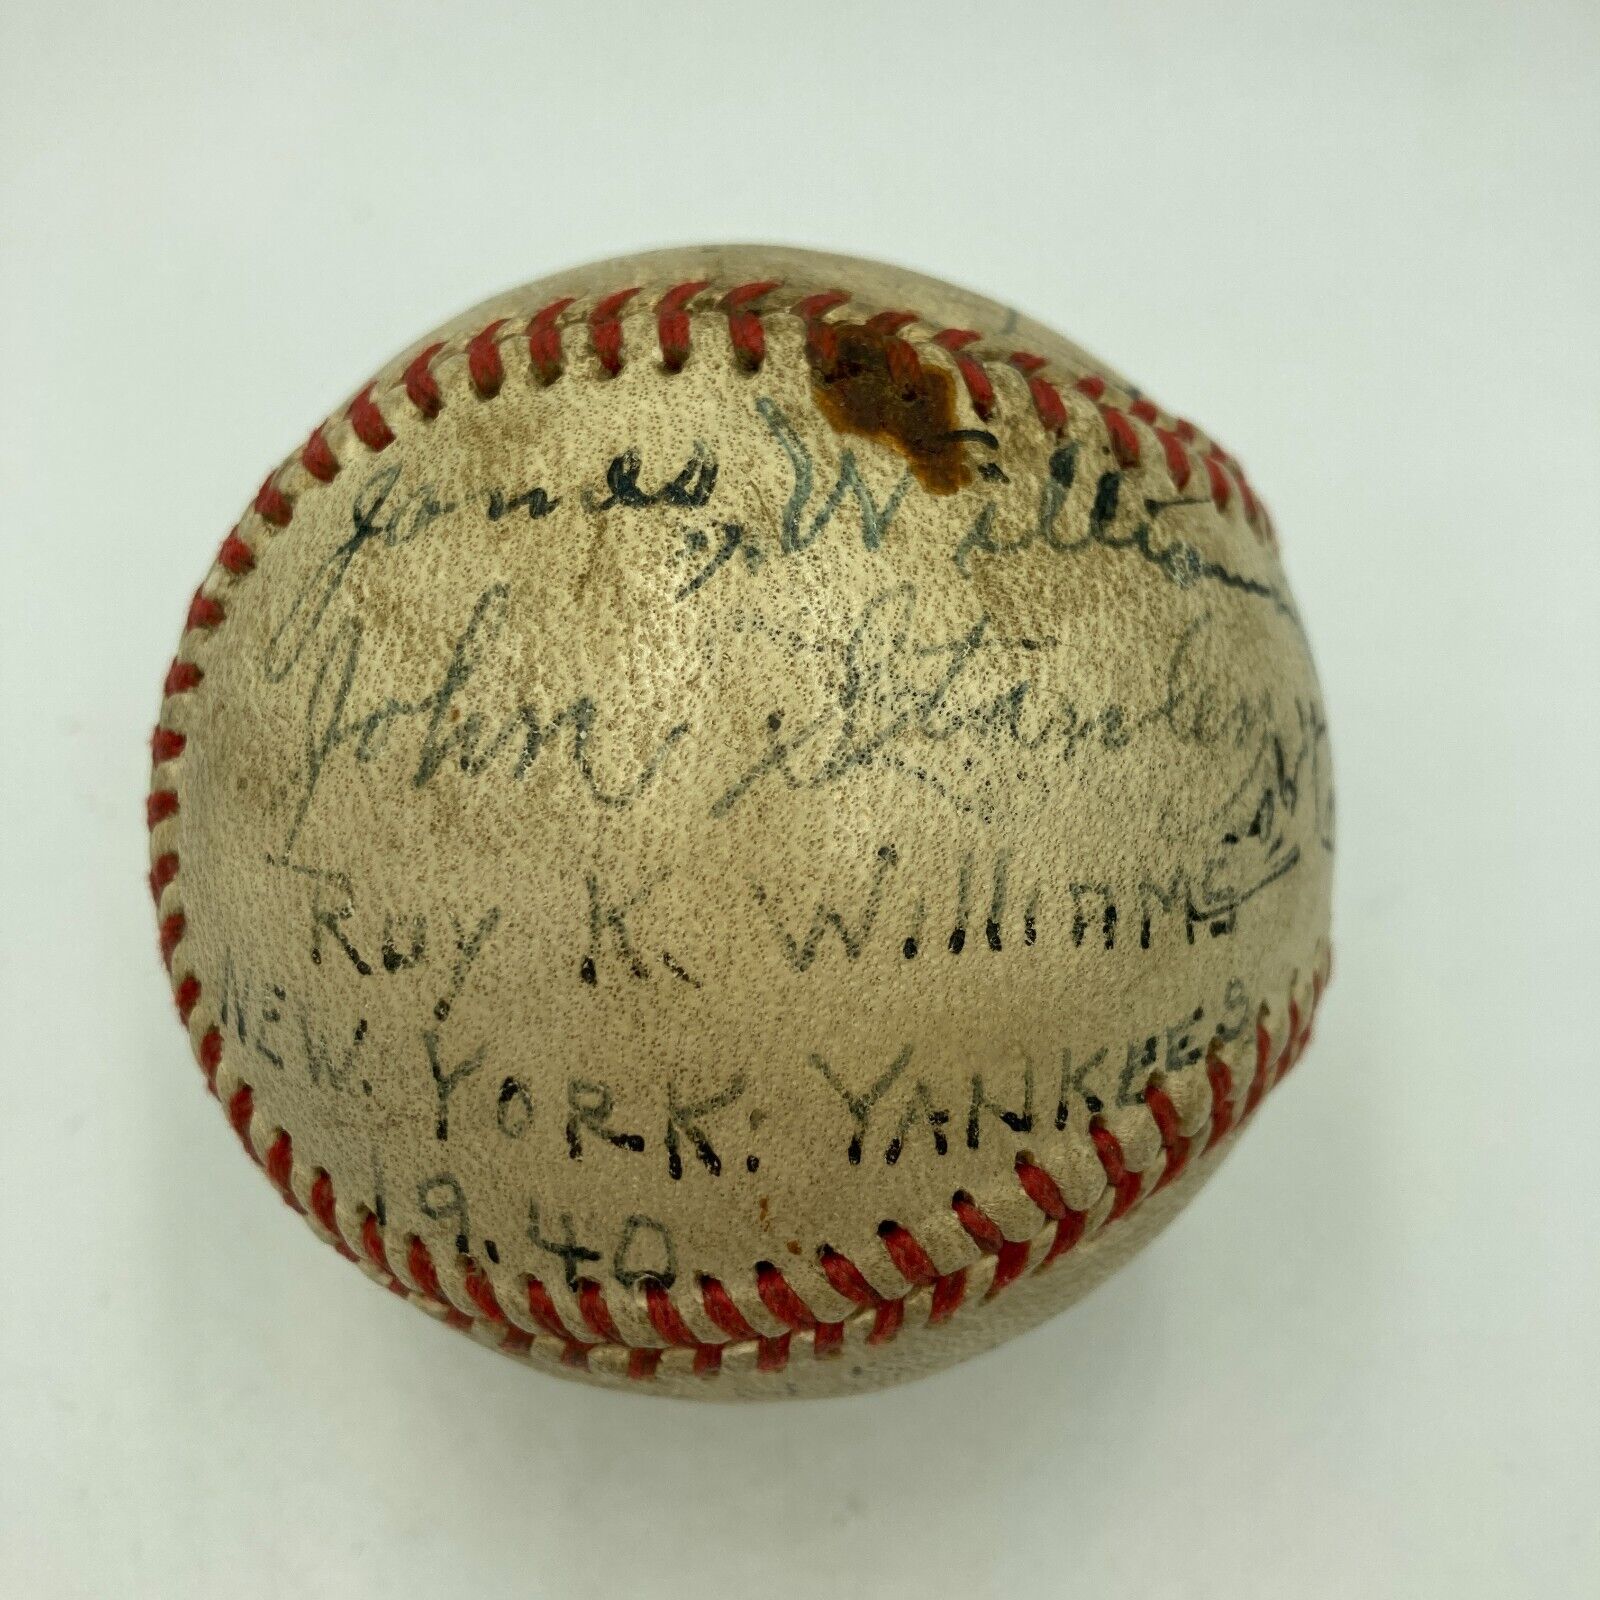 James Y. Williams
John Stanley
Roy K. Williams
NEW. YORK. YANKEES
19.40